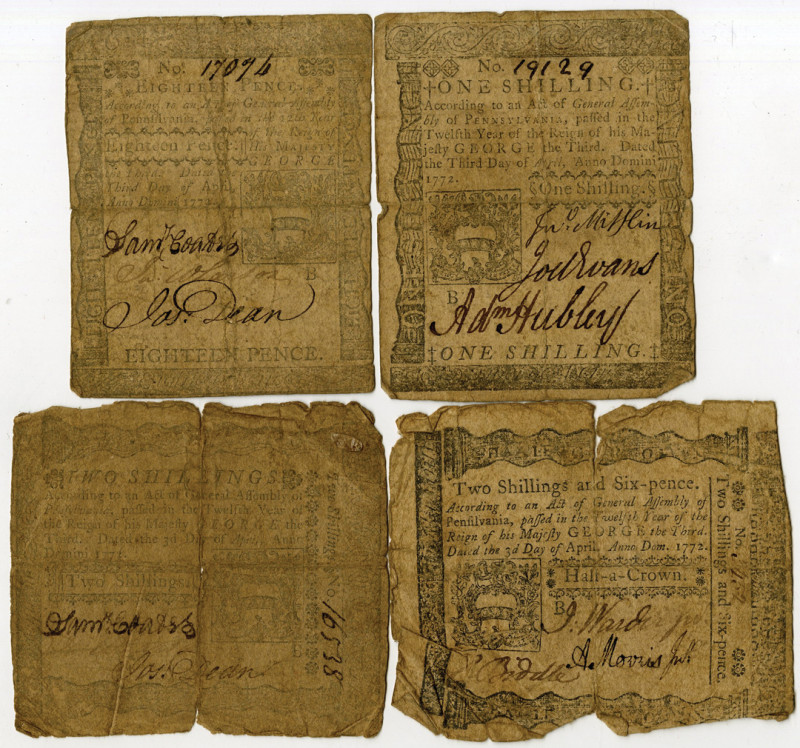 No. 17076
EIGHTEEN PENCE.
According to an Act of General Assembly
of Pennsylvania, passed in the 12th Year
of the Reign of
Eighteen Pence. His MAJESTY
GEORGE
the Third. Dated the
Third Day of April,
Anno Domini 1772.
Saml Coates
B
Jos. Dean
EIGHTEEN PENCE.
No. 19129
ONE SHILLING.
According to an Act of General Assem-
bly of PENNSYLVANIA, passed in the
Twelfth Year of the Reign of his Ma-
jesty GEORGE the Third. Dated
the Third Day of April, Anno Domini
1772.
One Shilling.
Jno. Mifflin
Joel Evans
B
Adm Hubley
ONE SHILLING.
TWO SHILLINGS.
According to an Act of General Assembly of
Pennsylvania, passed in the Twelfth Year of
the Reign of his Majesty GEORGE the
Third. Dated the 3d Day of April, Anno
Domini 1772.
Two Shillings.
Saml. Coates
Jos. Dean
Two Shillings.
No. 16538
Two Shillings and Six-pence.
According to an Act of General Assembly of
Pensilvania, passed in the Twelfth Year of the
Reign of his Majesty GEORGE the Third.
Dated the 3d Day of April, Anno Dom. 1772.
Half-a-Crown.
B
J. Warder
A. Morris Junr
Biddle
No.
Two Shillings and Six-pence.